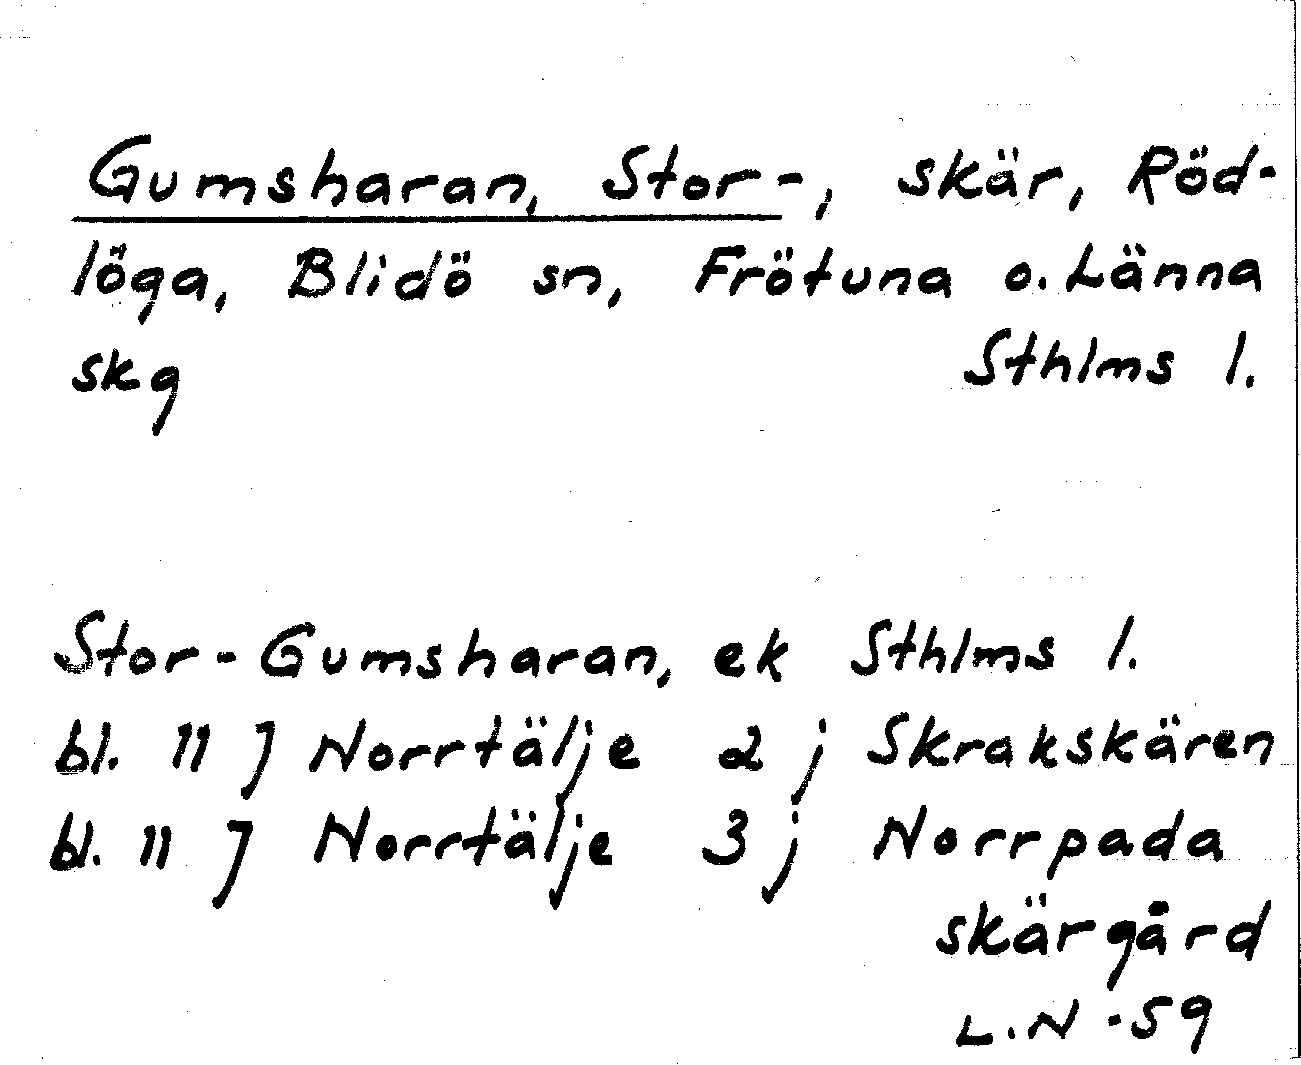 Gumsharan, Stor-, skär, Röd-
löga, Blidö sn, Frötuna o. Länna
skg Sthlms l.
Stor-Gumsharan, ek Sthlms l.
bl. 11 J Norrtälje 2 j Skrakskären
bl. 11 J Norrtälje 3 j Norrpada
skärgård
L.N -59